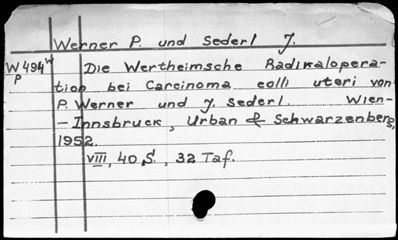 Werner P. und Sederl J.
W 494 w
P
Die Wertheimsche Radikalopera-
tion bei Carcinoma colli uteri von
P. Werner und J. Sederl. Wien-
- Innsbruck, Urban & Schwarzenberg,
1952.
VIII, 40 S., 32 Taf.